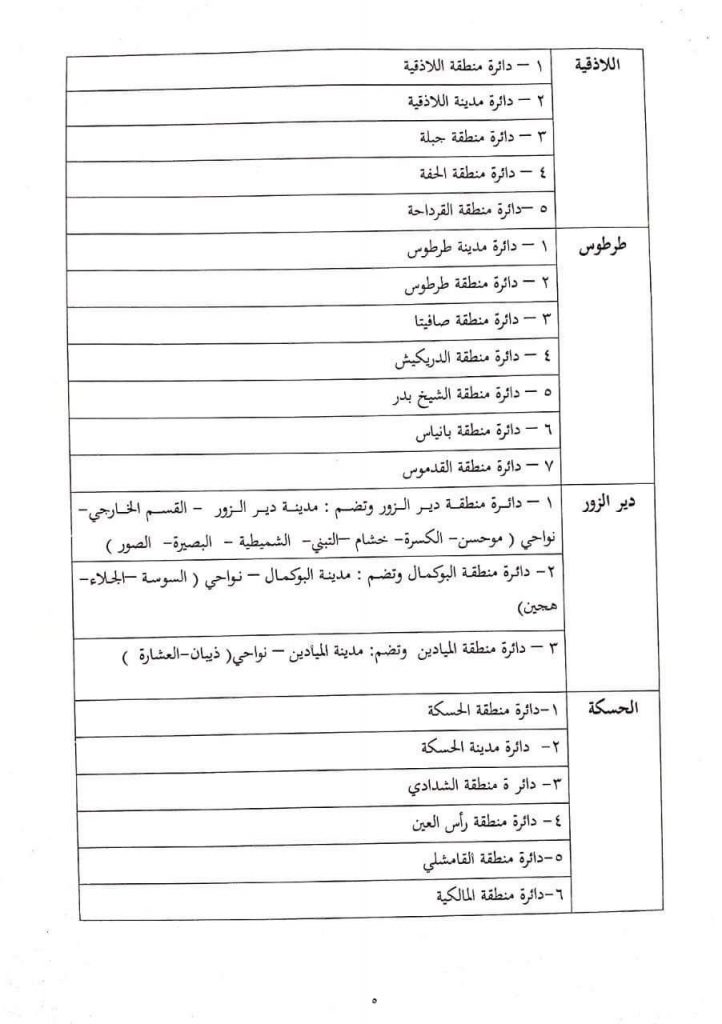 اللاذقية
١ – دائرة منطقة اللاذقية
٢ – دائرة مدينة اللاذقية
٣ – دائرة منطقة جبلة
٤ – دائرة منطقة الحفة
٥ –دائرة منطقة القرداحة
طرطوس
١ – دائرة مدينة طرطوس
٢ – دائرة منطقة طرطوس
٣ – دائرة منطقة صافيتا
٤ – دائرة منطقة الدريكيش
٥ – دائرة منطقة الشيخ بدر
٦ – دائرة منطقة بانياس
٧ – دائرة منطقة القدموس
دير الزور
١ – دائرة منطقة دير الزور وتضم : مدينة دير الزور – القسم الخارجي–
نواحي ( موحسن– الكسرة– خشام –التبني– الشميطية – البصيرة– الصور )
٢– دائرة منطقة البوكمال وتضم : مدينة البوكمال – نواحي ( السوسة –الجلاء–
هجين)
٣ – دائرة منطقة الميادين وتضم: مدينة الميادين – نواحي( ذيبان–العشارة )
الحسكة
١–دائرة منطقة الحسكة
٢– دائرة مدينة الحسكة
٣– دائر ة منطقة الشدادي
٤– دائرة منطقة رأس العين
٥–دائرة منطقة القامشلي
٦–دائرة منطقة المالكية
٥